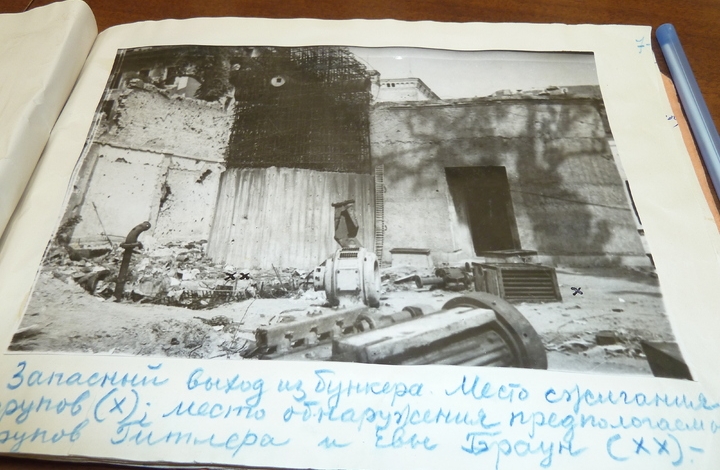 Запасный выход из бункера. Место сжигания
трупов (x); место обнаружения предпологаем
трупов Гитлера и Евы Браун (xx).-
xx
x